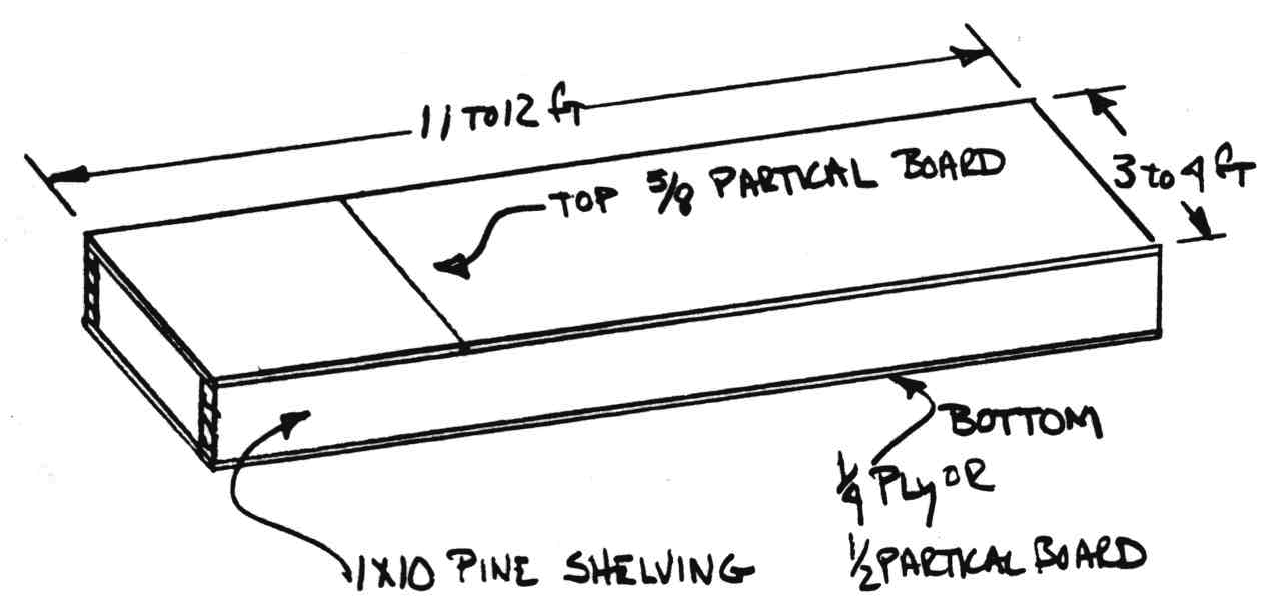 11 TO 12 ft
TOP 5/8 PARTICAL BOARD
3 to 4 ft
BOTTOM
1/4 PLy OR
1/2 PARTICAL BOARD
1X10 PINE SHELVING